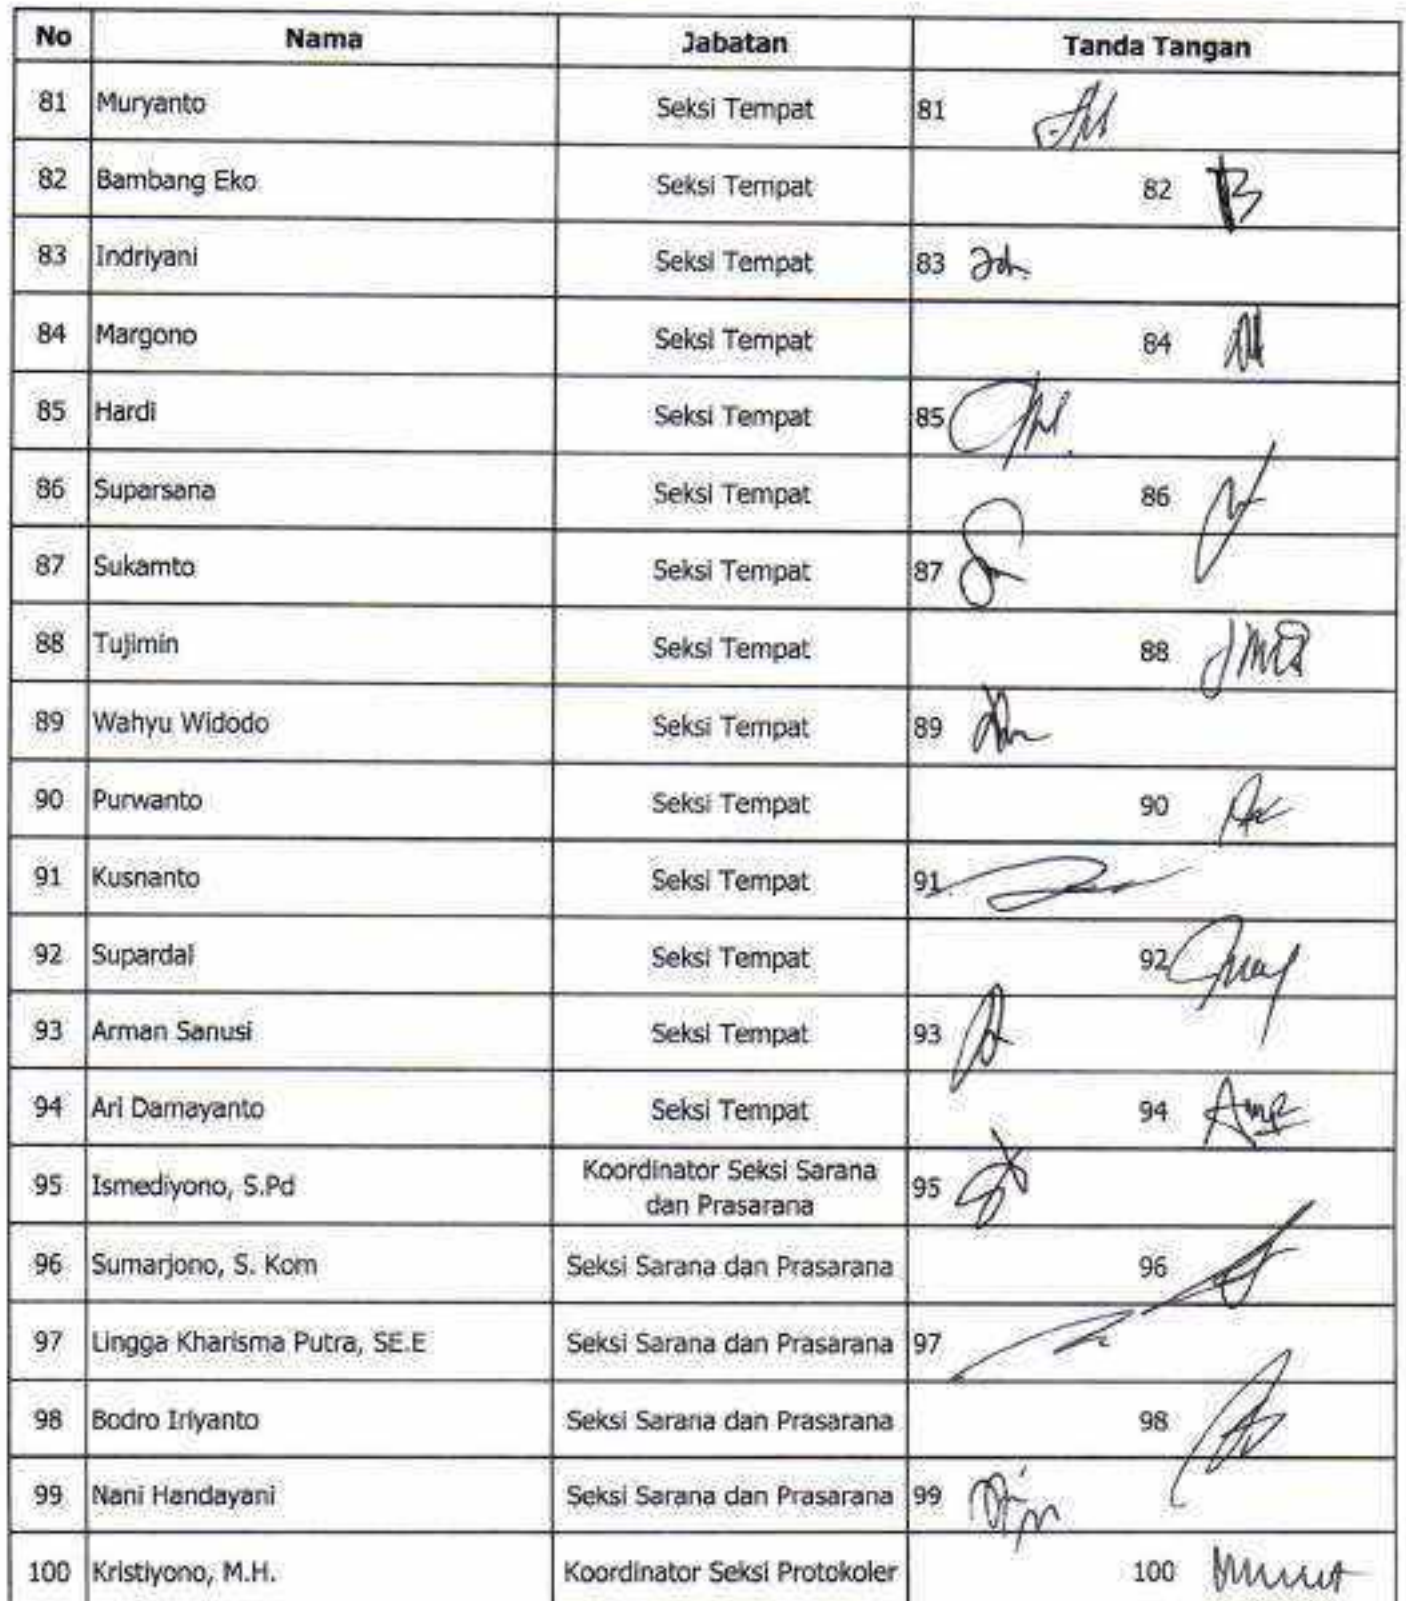 No Nama Jabatan Tanda Tangan
81 Muryanto Seksi Tempat 81
82 Bambang Eko Seksi Tempat 82
83 Indriyani Seksi Tempat 83
84 Margono Seksi Tempat 84
85 Hardi Seksi Tempat 85
86 Suparsana Seksi Tempat 86
87 Sukamto Seksi Tempat 87
88 Tujimin Seksi Tempat 88
89 Wahyu Widodo Seksi Tempat 89
90 Purwanto Seksi Tempat 90
91 Kusnanto Seksi Tempat 91
92 Supardal Seksi Tempat 92
93 Arman Sanusi Seksi Tempat 93
94 Ari Damayanto Seksi Tempat 94
95 Ismediyono, S.Pd Koordinator Seksi Sarana
dan Prasarana 95
96 Sumarjono, S. Kom Seksi Sarana dan Prasarana 96
97 Lingga Kharisma Putra, SE.E Seksi Sarana dan Prasarana 97
98 Bodro Iriyanto Seksi Sarana dan Prasarana 98
99 Nani Handayani Seksi Sarana dan Prasarana 99
100 Kristiyono, M.H. Koordinator Seksi Protokoler 100